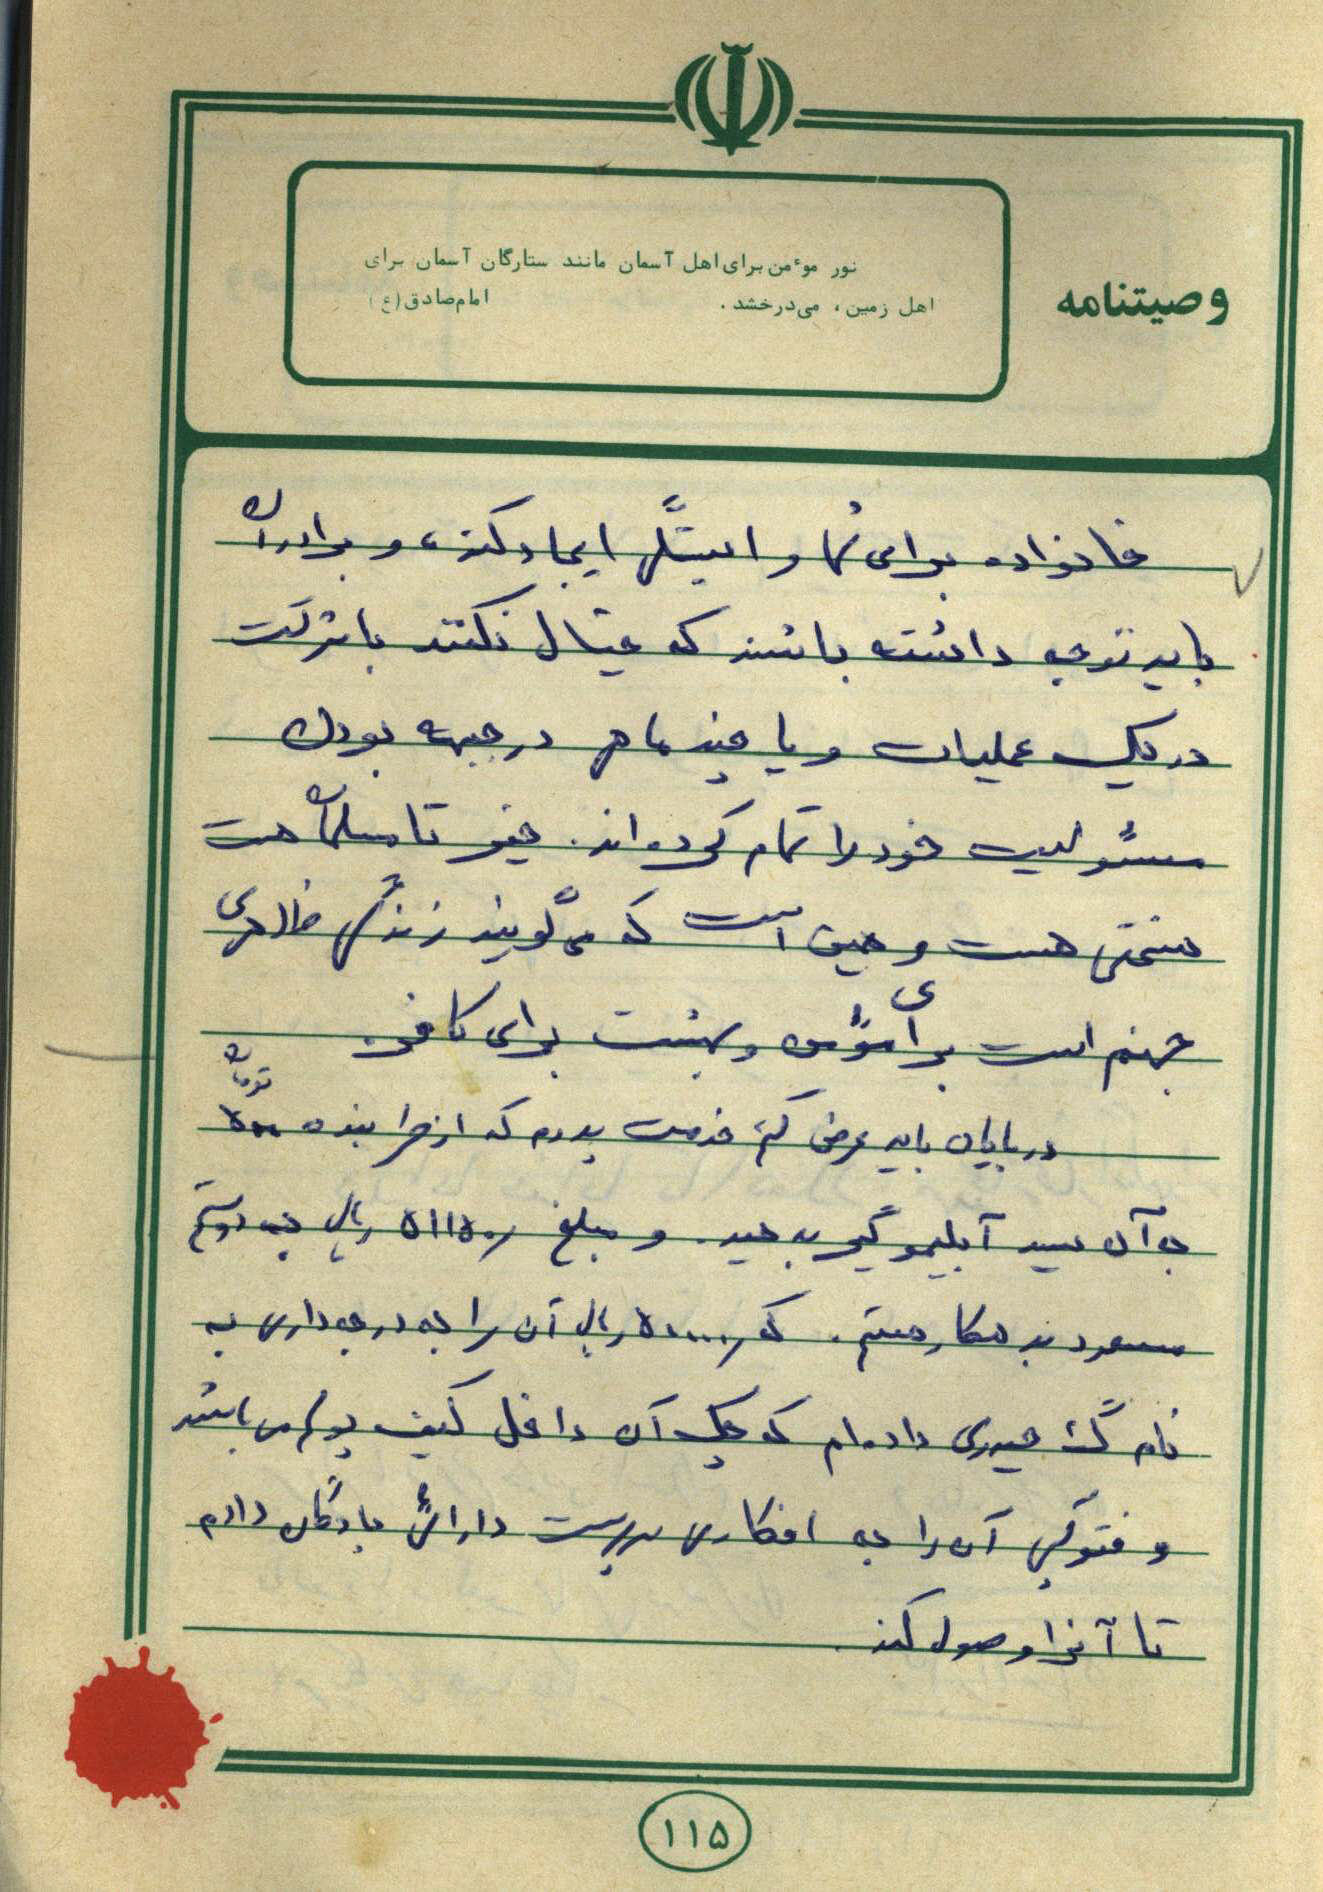 وصیتنامه
نور موءمن برای اهل آسمان مانند ستارگان آسمان برای
اهل زمین، می‌درخشد. امام صادق (ع)
خانواده برای شما وابستگی ایجاد کند، و برادران
باید توجه داشته باشند که خیال نکنند با شرکت
در یک عملیات و یا چند ماه در جبهه بودن
مسئولیت خود را تمام کرده‌اند. خیر تا مسلمان هست
سختی هست و همین است که می‌گویند زندگی ظاهری
جهنم است برای مؤمن و بهشت برای کافر.
در پایان باید عرض کنم خدمت پدرم که از طرف بنده ۵۰۰ تومان
به آن سید آبلیموگیر بدهید. و مبلغ ۵۱۱۵۰ ریال به دوستم
مسعود بدهکار هستم. که ۵۰۰۰۰ ریال آن را به درجه‌داری به
نام حیدری داده‌ام که چک آن داخل کیف پولم می‌باشد
و فتوکپی آن را به افکاری سرپرست دارائی پادگان دادم
تا آنرا وصول کند.
۱۱۵